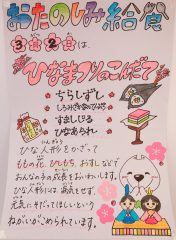 おたのしみ給食
3月2日は、
ひなまつりのこんだて
ちらしずし
しろみざかなのてんぷら
すましじる
ひなあられ
ひな人形をかざって
ももの花、ひしもち、おすしなどで
おんなの子の成長をおいわいします。
ひな人形には病気をせず、
元気にそだってほしいという
ねがいがこめられています。